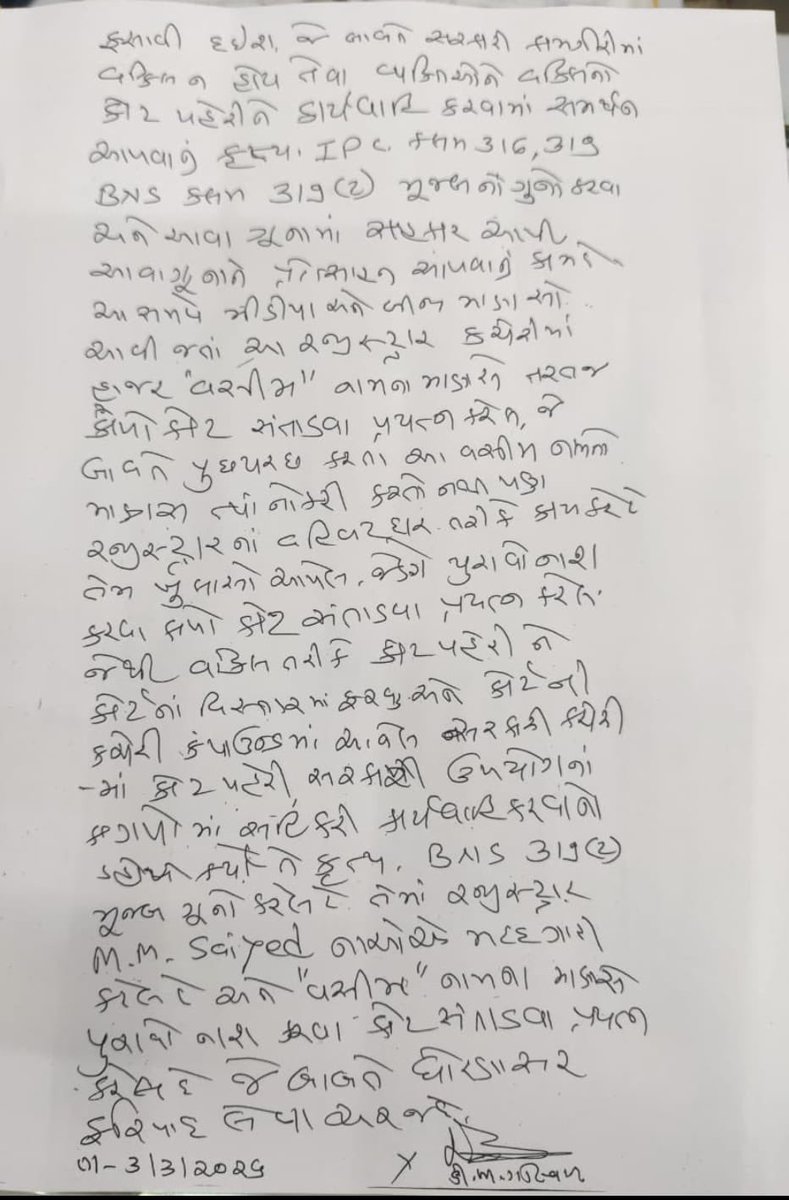 ફસાવી દઇશ, જે બાબતે સરકારી કામગીરીમાં
વકિલ ન હોય તેવા વ્યકિતઓને વકિલનો
કોટ પહેરીને કાર્યવાહિ કરવામાં સમર્થન
આપવાનું કૃત્ય. IPC. કલમ 316, 319
BNS કલમ 319 (૨) મૂજબનો ગુનો કરવા
અને આવા ગૂનામાં સહકાર આપી
આવા ગૂનાને પ્રોત્સાહન આપવાનું કામ કરે
આ સમયે મીડીયા અને બીજા માણસો
આવી જતાં આ રજીસ્ટ્રાર કચેરીમાં
હાજર "વસીમ" નામના માણસે તરત જ
કાળો કોટ સંતાડવા પ્રયત્ન કરેલ, જે
બાબતે પુછપરછ કરતા આ વસીમ નામનો
માણસ ત્યાં નોકરી કરતો નથી પણ
રજીસ્ટ્રારનાં વહિવટદાર તરીકે કામ કરે છે
તેમ ખુલાસો આપેલ, જેણે પુરાવો નાશ
કરવા કાળો કોટ સંતાડવા પ્રયત્ન કરેલ.
જેથી વકિલ તરીકે કોટ પહેરી ને
કોર્ટનાં વિસ્તારમાં ફરવુ અને કોર્ટની
કચેરી કંપાઉન્ડમાં આવેલ સરકારી કચેરી
-માં કોટ પહેરી સરકારી ઉપયોગનાં
કાગળો માં સહિ કરી કાર્યવાહિ કરવાનો
કર્યો તે કૃત્ય. BNS 319 (૨)
મૂજબ ગૂનો કરેલ છે તેમાં રજીસ્ટ્રાર
M.M. Saiyed નાઓએ મદદગારી
કરેલ છે અને "વસીમ" નામના માણસે
પુરાવો નાશ કરવા કોટ સંતાડવા પ્રયત્ન
કરેલ છે જે બાબતે ધોરણસર
ફરિયાદ લેવા અરજ છે.
તા-૩/૩/૨૦૨૬
X